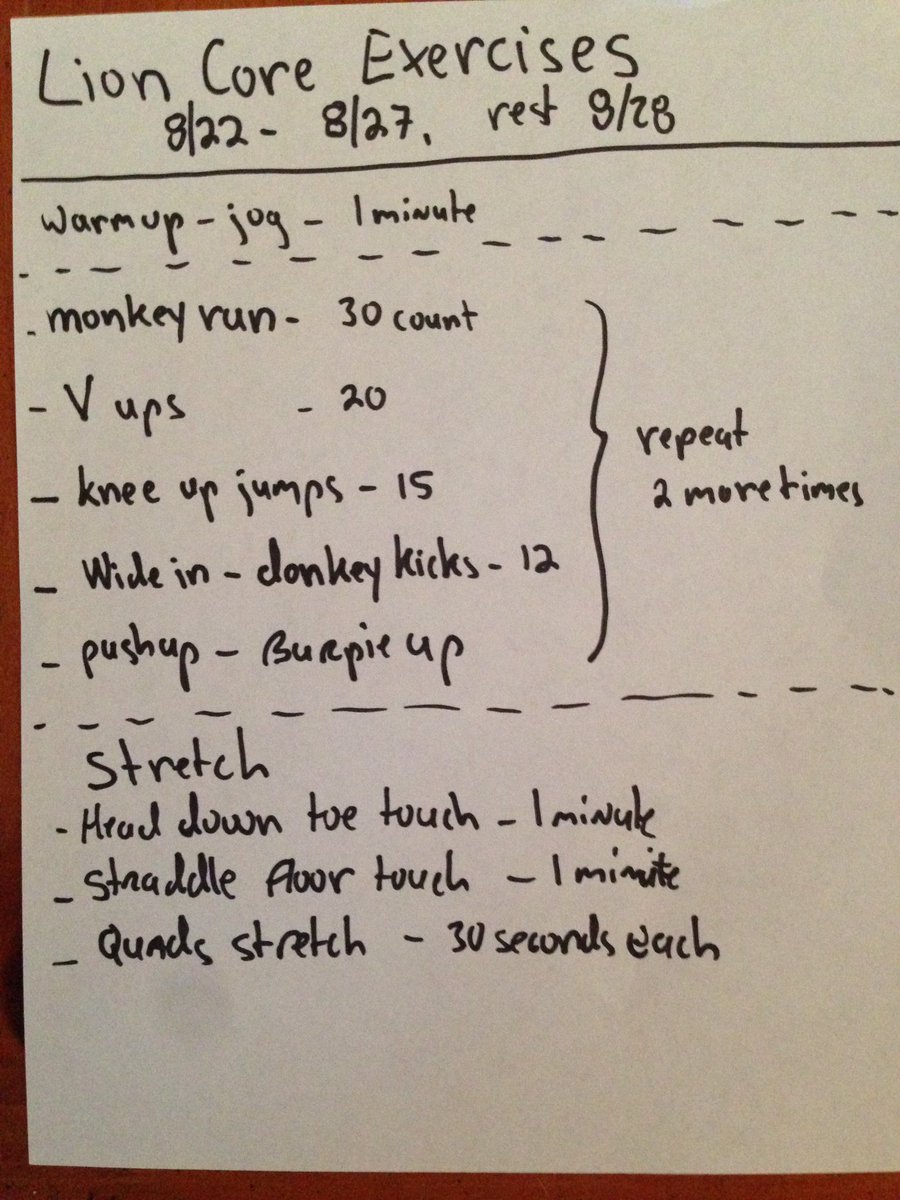 Lion Core Exercises
8/22 - 8/27, rest 8/28
Warm up - jog - 1 minute
- monkey run - 30 count
- V ups - 20
- knee up jumps - 15
- Wide in - donkey kicks - 12
- pushup - Burpie up
repeat
2 more times
Stretch
- Head down toe touch - 1 minute
- Straddle floor touch - 1 minite
- Quads stretch - 30 seconds each